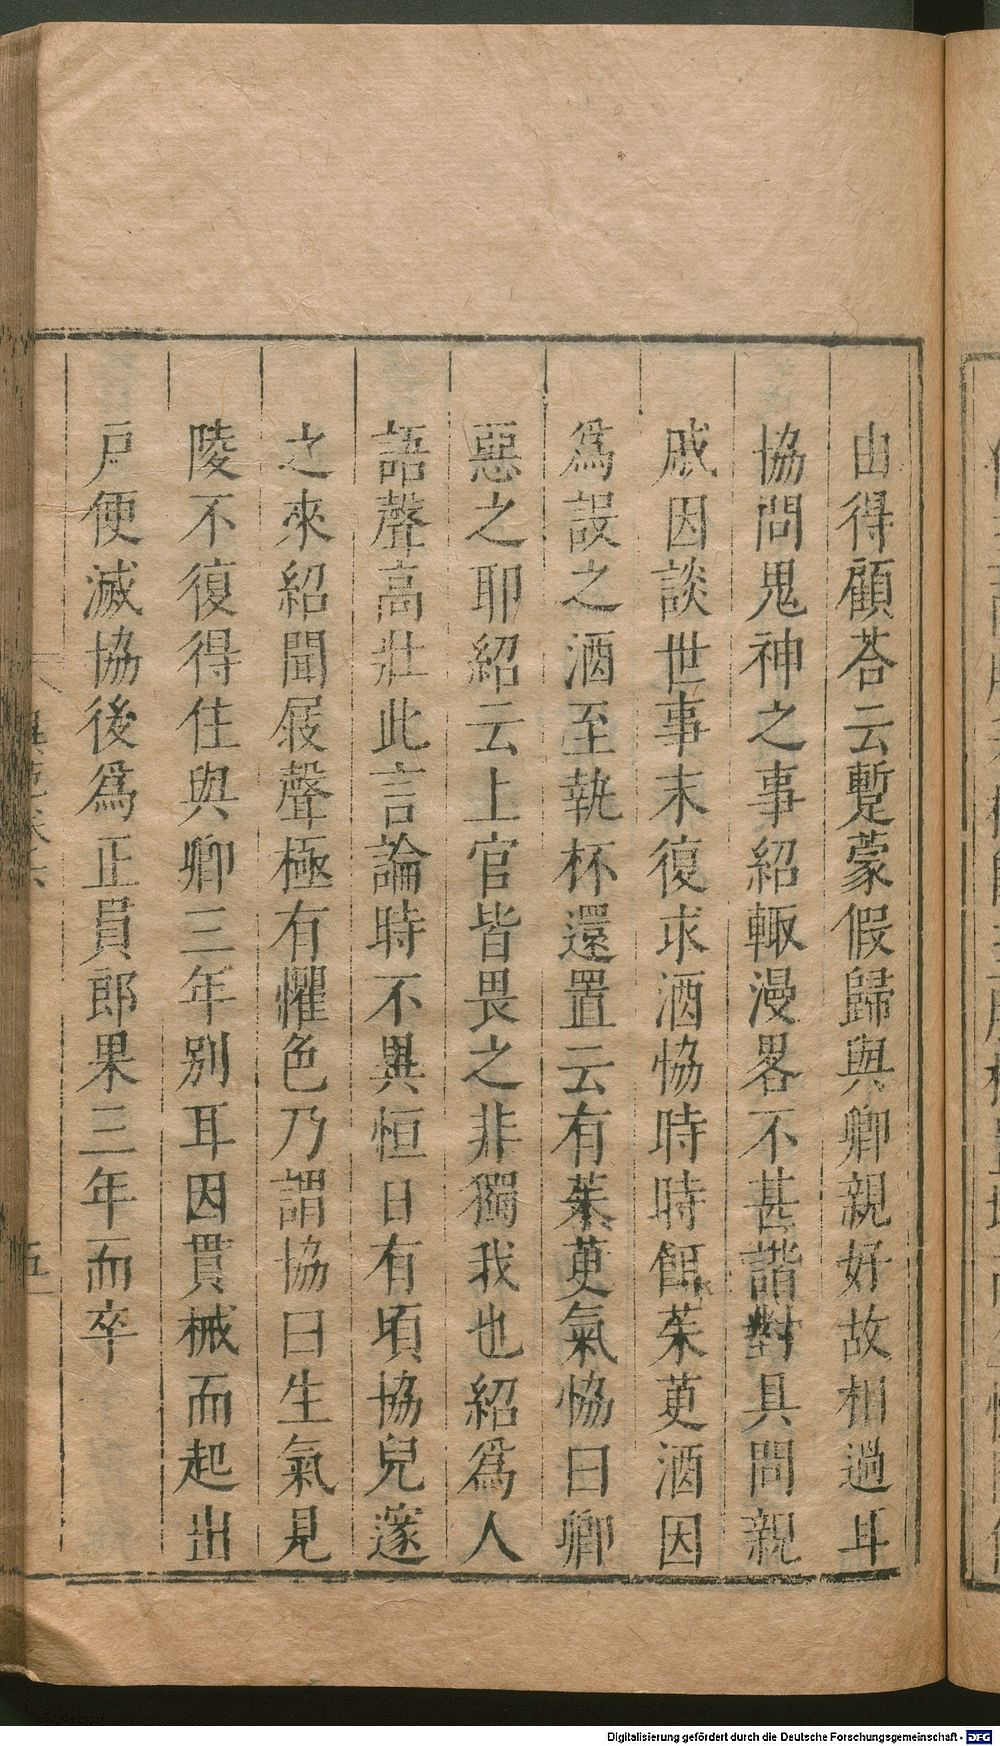 由得顧荅云蹔蒙假歸與卿親好故相過耳
協問鬼神之事紹輙漫畧不甚諧對具問親
戚因談世事末復求酒恊時時餌茱萸酒因
爲設之酒至執杯還置云有茱萸氣恊曰卿
惡之耶紹云上官皆畏之非獨我也紹爲人
語聲高壯此言論時不異恒日有頃協兒邃
之來紹聞屐聲極有懼色乃謂協曰生氣見
陵不復得住與卿三年別耳因貫械而起出
戸便滅協後爲正員郎果三年而卒
五
Digitalisierung gefördert durch die Deutsche Forschungsgemeinschaft - DFG